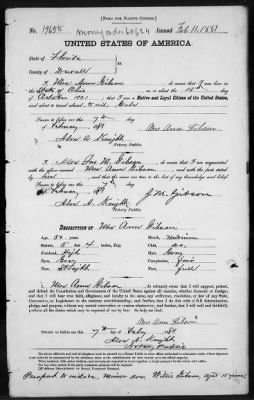 [FORM FOR NATIVE CITIZEN.]
No. 19658 Issued Feb. 11, 1881
UNITED STATES OF AMERICA.
State of Florida
County of Duvall
I, Mrs Ann Gibson do swear that I was born in the
State of Ohio on or about the 15th day
of October, 1831 that I am a Native and Loyal Citizen of the United States,
and about to travel abroad,
Sworn to before me this 7th day
of February 1881
Mrs Ann Gibson
Alex A. Knight
Notary Public.
I, Jos M. Gibson do swear that I am acquainted
with the above-named Mrs Ann Gibson and with the facts stated by
her and that the same are true to the best of my knowledge and belief.
Sworn to before me this 7th day
of February 1881
J. M. Gibson
Alex A. Knight
Notary Public.
DESCRIPTION OF Mrs Ann Gibson
Age: 50 years Mouth: medium
Stature: 5 feet 4 inches, Eng. Chin:
Forehead: High Hair: Grey
Eyes: Grey Complexion: Fair
Nose: Straight Face: Full
I, Mrs Ann Gibson do solemnly swear that I will support, protect, and
defend the Constitution and Government of the United States against all enemies, whether domestic or foreign; and
that I will bear true faith, allegiance, and loyalty to the same, any ordinance, resolution, or law of any State,
Convention, or Legislature to the contrary notwithstanding; and further, that I do this with a full determination,
pledge, and purpose, without any mental reservation or evasion whatsoever; and, further, that I will well and faithfully perform all
the duties which may be required of me by law: So help me God.
Mrs Ann Gibson
Sworn to before me this 7th day
of Feby 1881
Alex A. Knight
Notary Public
Passport to include minor son Willie Gibson, aged 15 years